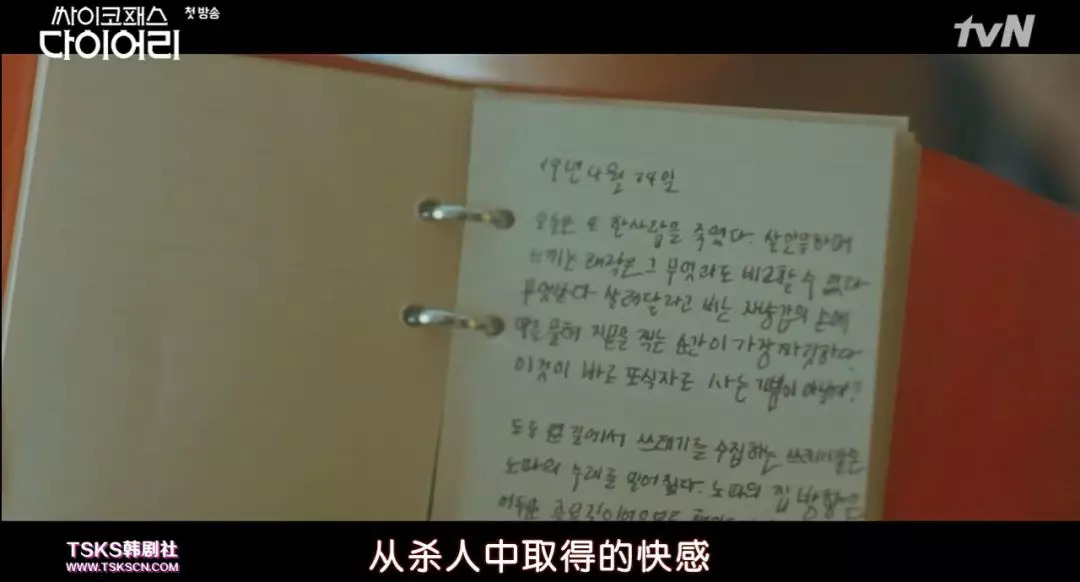 싸이코패스 첫방송
다이어리
tvN
19년 4월 24일
오늘은 또 한사람을 죽였다. 살인을하며
느끼는 쾌락은 그 무엇과도 비교할 수 없다
무엇보다 살려달라고 비는 사냥감의 손에
피를 묻혀 지문을 찍는 순간이 가장 짜릿하다.
이것이 바로 포식자로 사는 기쁨이 아닐까?
길에서 쓰레기를 수집하는 쓰레기같은
노파의 수레를 밀어줬다. 노파의 집 방향은
어두운
TSKS韩剧社
WWW.TSKSCN.COM
从杀人中取得的快感